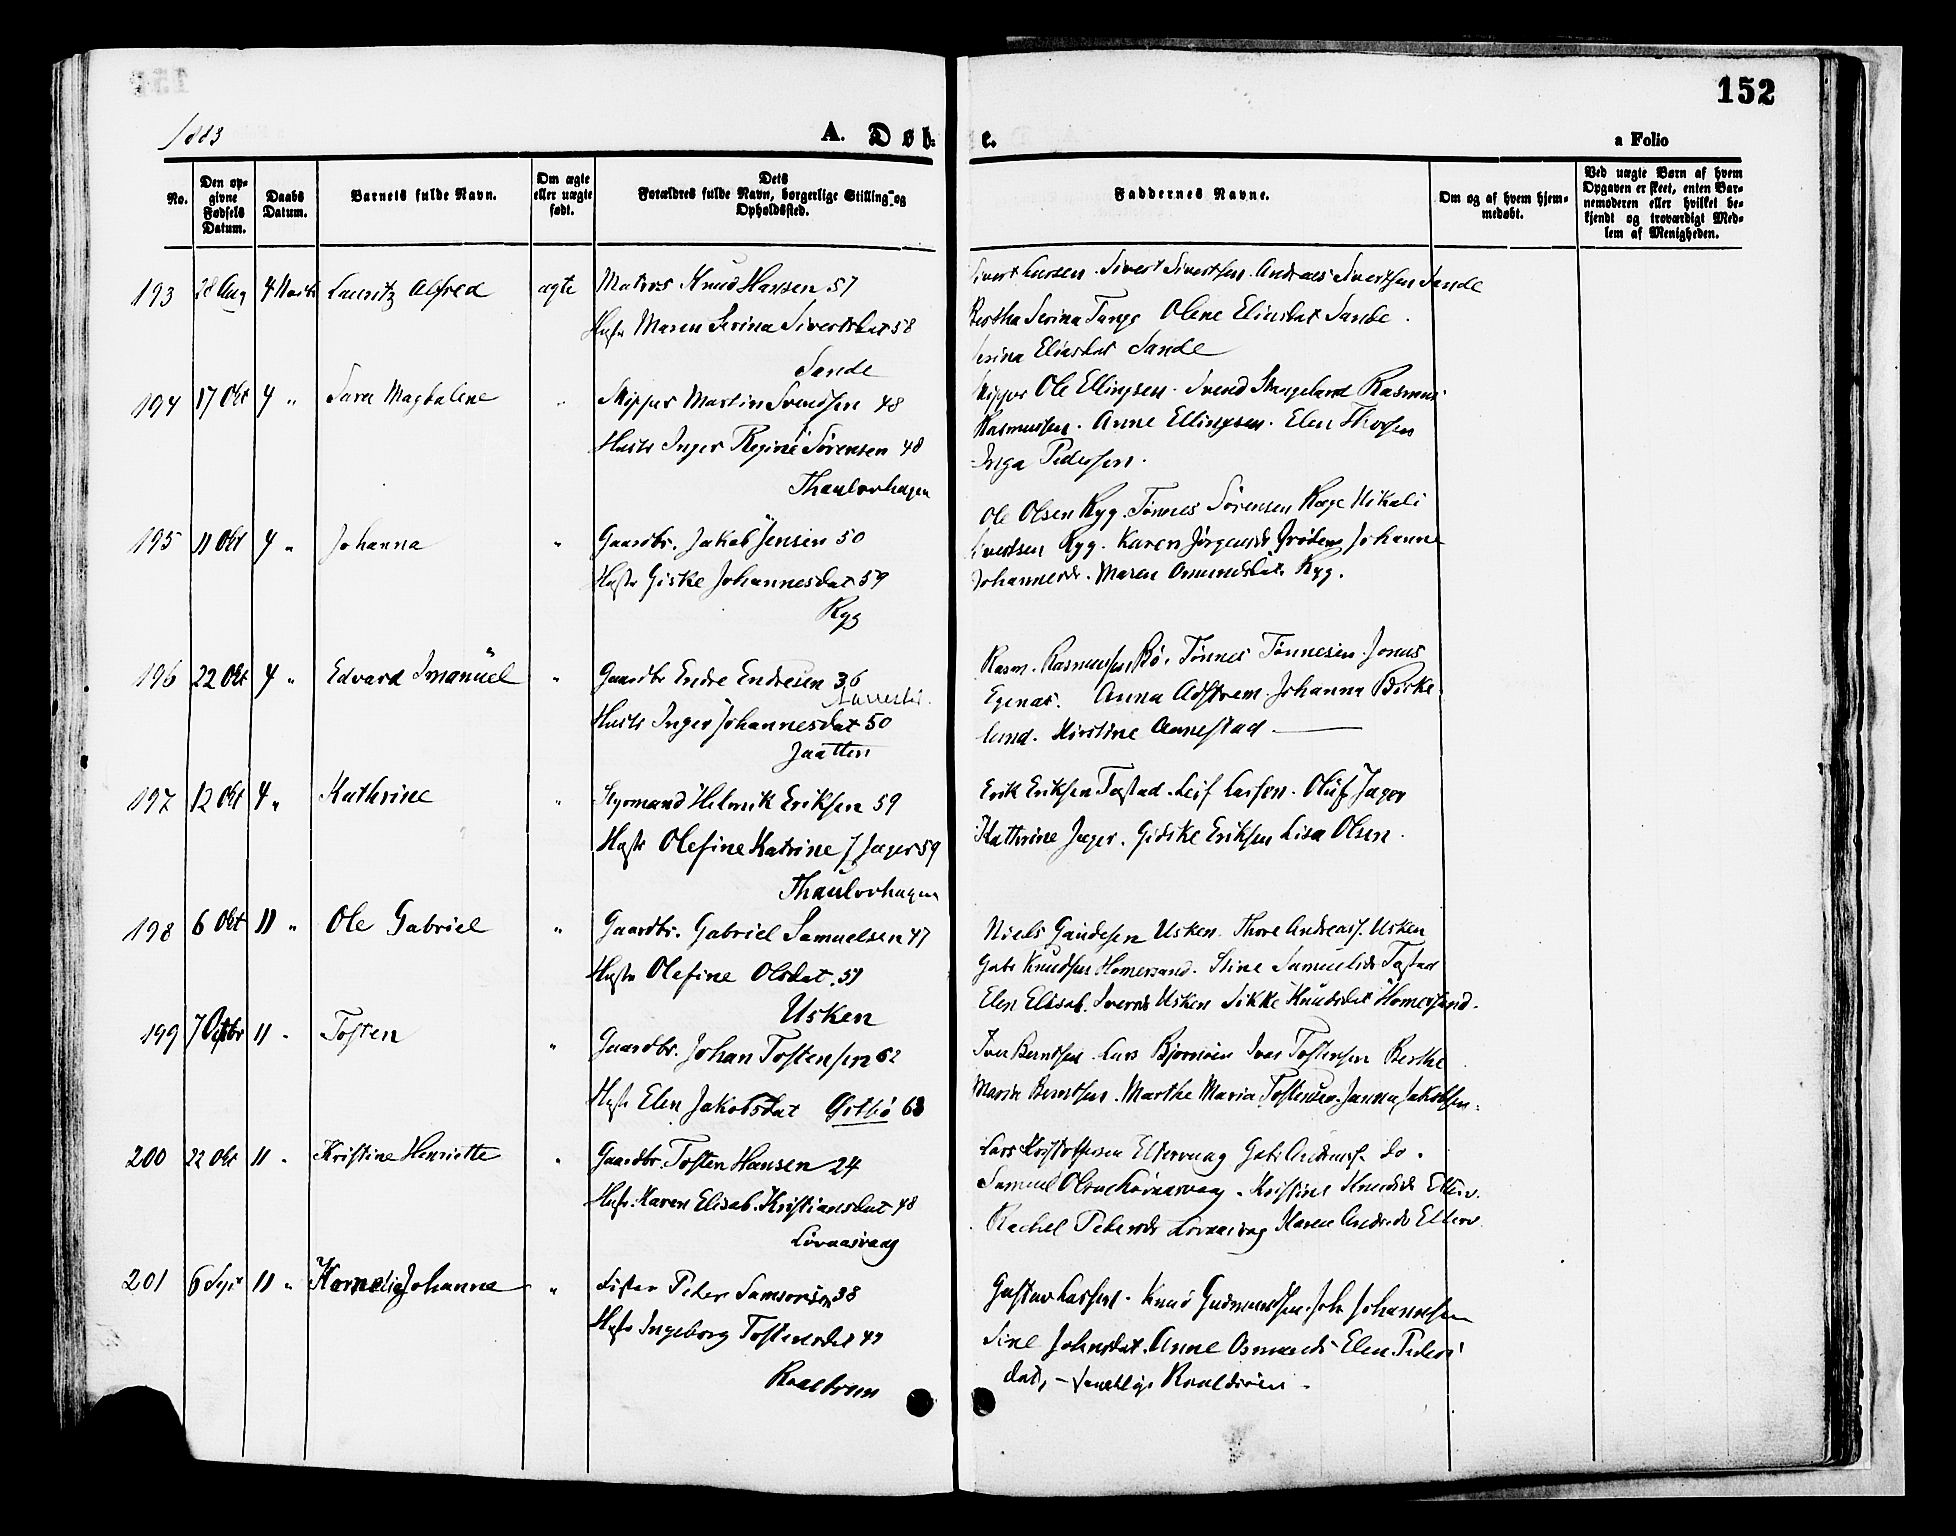 152
1883
A. Døb- e.
a Folio
No.
Den op-
givne
Fødsels
Datum.
Daabs
Datum.
Barnets fulde Navn.
Om ægte
eller uægte
født.
Dets
Forældres fulde Navn, borgerlige Stilling og
Opholdssted.
Faddernes Navne.
Om og af hvem hjem-
medøbt.
Ved uægte Børn af hvem
Opgaven er skeet, enten Bar-
nemoderen eller hvilket be-
kjendt og troværdigt Med-
lem af Menigheden.
193 28 Aug 4 Lauritz Alfred ægte Matros Knud Hansen 57
Maren Serina Sivertsdat 58
Sande
Sivert Larsen. Sivert Sivertsen. Andreas Sivertsen Sande
Bertha Serina Tange Olene Eliasdat Sande.
Serina Eliasdat Sande
194 17 Okt 4 " Sara Magdalene " Skipper Martin Svendsen 48
Hustr Inger Regine Sørensen 48
Thaulovhagen
Skipper Ole Ellingsen. Svend Skageland Rasmus
Rasmussen. Anne Ellingsen. Elen
Inga Pedersen.
195 11 Okt 4 " Johanna " Gaardbr. Jakob Jensen 50
Hustr Giske Johannesdat 59
Ryg
Ole Olsen Ryg. Tønnes Sørensen Rege Nikolai
Sivertsen Ryg. Karen Jørgensd Grødem Johanne
Johannesd. Maren Osmundsdat. Ryg.
196 22 Okt 4 " Edvard Imanuel " Gaardbr Endre Endresen 36
Hustr Inger Johannesdat 50
Jaatten
Rasm. Rasmussen Bø. Tønnes Tønnesen. Jonas
Egenæs. Anna Østrem. Johanna Birke-
lund. Kirstine Aanestad
197 12 Okt 4 " Kathrine " Styrmand Helmik Eriksen 59
Hustr Olefine Katrine J Jæger 59
Thaulovhagen
Erik Eriksen Tastad. Leif Larsen. Oluf Jæger
Kathrine Jæger. Gidske Eriksen Lisa Olsen.
198 6 Okt 11 " Ole Gabriel " Gaardbr. Gabriel Samuelsen 47
Hustr Olefine Olsdat. 51
Usken
Niels Gaudesen Usken. Thore Andreass. Usken
Gabr Knudsen Homersand. Stine Samuelsd Tastad
Elen Elisab. Iversd Usken Sikke Knudsdat Homersand.
199 7 Oktbr 11 " Tosten " Gaardbr. Johan Tostensen 62
Hustr Elen Jakobsdat Østbø 63
Iver Berntsen. Lars Bjørnøen Ivar Tostensen Berthe
Maria Berntsen. Marthe Maria Tostensen. Janna Jakobsen.
200 22 Okt 11 " Kristine Henriette " Gaardbr. Tosten Hansen 24
Hustr. Karen Elisab. Kristiansdat 48
Lovaasvaag
Lars Kristoffersen Eltervaag Gabr. Andreass. do.
Samuel Olsen Lovaasvaag. Kristine Knudsd Elterv.
Rachel Pedersd Lovaasvag Karen Andr.d Elterv.
201 6 Sept 11 " Kornelie Johanna " Fisker Peder Samsonsen 38
Hustr Ingeborg Tostensdat 47
Roaldsøen
Gustav Larsen. Knud Gudmundsen. Joh. Johannesen
Sine Johnsdat. Anne Osmundsd Elen Peders
dat, - samtlige Roaldsøen.